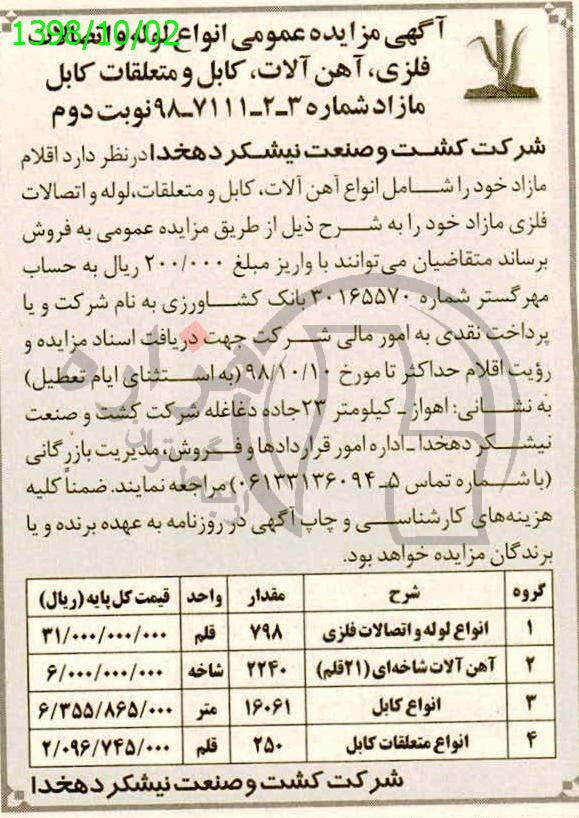 1398/10/02
آگهی مزایده عمومی انواع لوله و اتصالات
فلزی، آهن آلات، کابل و متعلقات کابل
مازاد شماره ۳ـ۲ـ۷۱۱۱ـ۹۸ نوبت دوم
شرکت کشت و صنعت نیشکر دهخدا در نظر دارد اقلام
مازاد خود را شامل انواع آهن آلات، کابل و متعلقات، لوله و اتصالات
فلزی مازاد خود را به شرح ذیل از طریق مزایده عمومی به فروش
برساند متقاضیان می‌توانند با واریز مبلغ ۲۰۰/۰۰۰ ریال به حساب
مهر گستر شماره ۳۰۱۶۵۵۷۰ بانک کشاورزی به نام شرکت و یا
پرداخت نقدی به امور مالی شرکت جهت دریافت اسناد مزایده و
رؤیت اقلام حداکثر تا مورخ ۹۸/۱۰/۱۰ (به استثنای ایام تعطیل)
به نشانی: اهواز ـ کیلومتر ۲۳ جاده دغاغله شرکت کشت و صنعت
نیشکر دهخدا ـ اداره امور قراردادها و فروش، مدیریت بازرگانی
(با شماره تماس ۵ـ۰۶۱۳۳۱۳۶۰۹۴) مراجعه نمایند. ضمناً کلیه
هزینه‌های کارشناسی و چاپ آگهی در روزنامه به عهده برنده و یا
برندگان مزایده خواهد بود.
گروه شرح مقدار واحد قیمت کل پایه (ریال)
۱ انواع لوله و اتصالات فلزی ۷۹۸ قلم ۳۱/۰۰۰/۰۰۰/۰۰۰
۲ آهن آلات شاخه‌ای (۲۱قلم) ۲۲۴۰ شاخه ۶/۰۰۰/۰۰۰/۰۰۰
۳ انواع کابل ۱۶۰۶۱ متر ۶/۳۵۵/۸۶۵/۰۰۰
۴ انواع متعلقات کابل ۲۵۰ قلم ۲/۰۹۶/۷۴۵/۰۰۰
شرکت کشت و صنعت نیشکر دهخدا